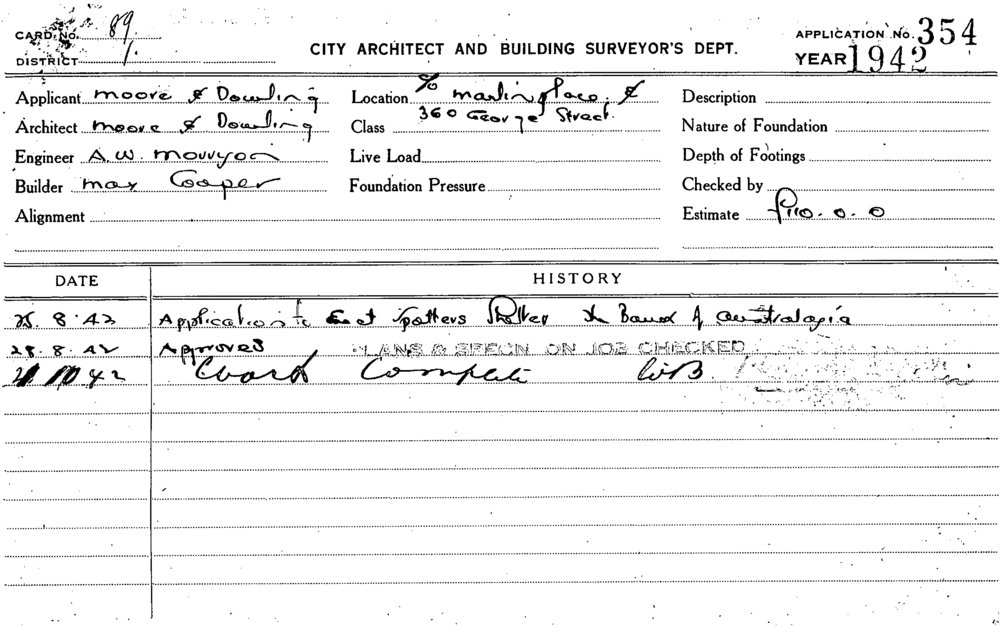 CARD No. 89
DISTRICT 1.
CITY ARCHITECT AND BUILDING SURVEYOR'S DEPT.
APPLICATION No. 354
YEAR 1942
Applicant Moore & Dowling
Architect Moore & Dowling
Engineer A.W.
Builder Max Cooper
Alignment
Location c/o Martin Place &
360 George Street.
Class
Live Load
Foundation Pressure
Description
Nature of Foundation
Depth of Footings
Checked by
Estimate £110.0.0
DATE HISTORY
25.8.42 Application to Spotters Shelter Bank of Australasia
28.8.42 Approved PLANS & SPECN ON JOB CHECKED
42 Work Complete